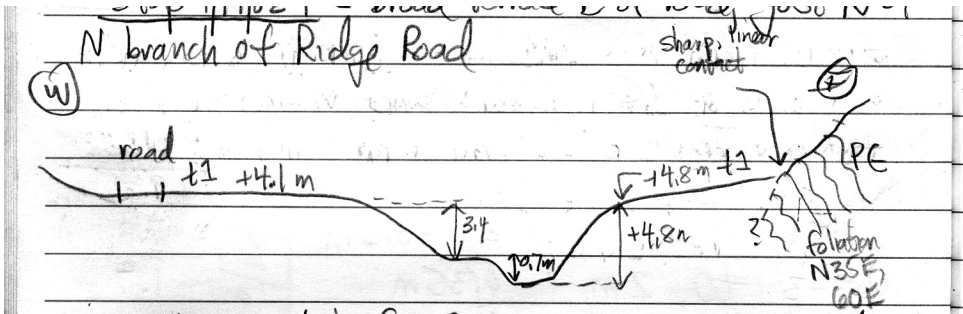 N branch of Ridge Road
sharp, linear
contact
W
E
road
t1 +4.1 m
+4.8m t1
PC
3.4
+4.8m
0.7m
?
foliation
N35E,
60E